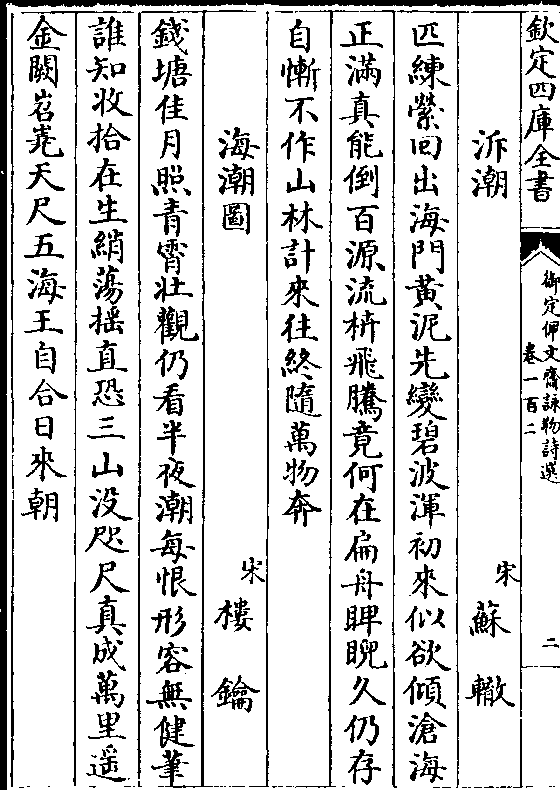 欽定四庫全書
御定佩文齋詠物詩選
卷一百二
二
泝潮
宋蘇轍
匹練縈回出海門黃泥先變碧波渾初來似欲傾滄海
正滿真能倒百源流枿飛騰竟何在扁舟睥睨久仍存
自慚不作山林計來往終隨萬物奔
海潮圖
宋樓鑰
錢塘佳月照青霄壯觀仍看半夜潮每恨形容無健筆
誰知收拾在生綃蕩搖直恐三山没咫尺真成萬里遥
金闕岧嶤天尺五海王自合日來朝